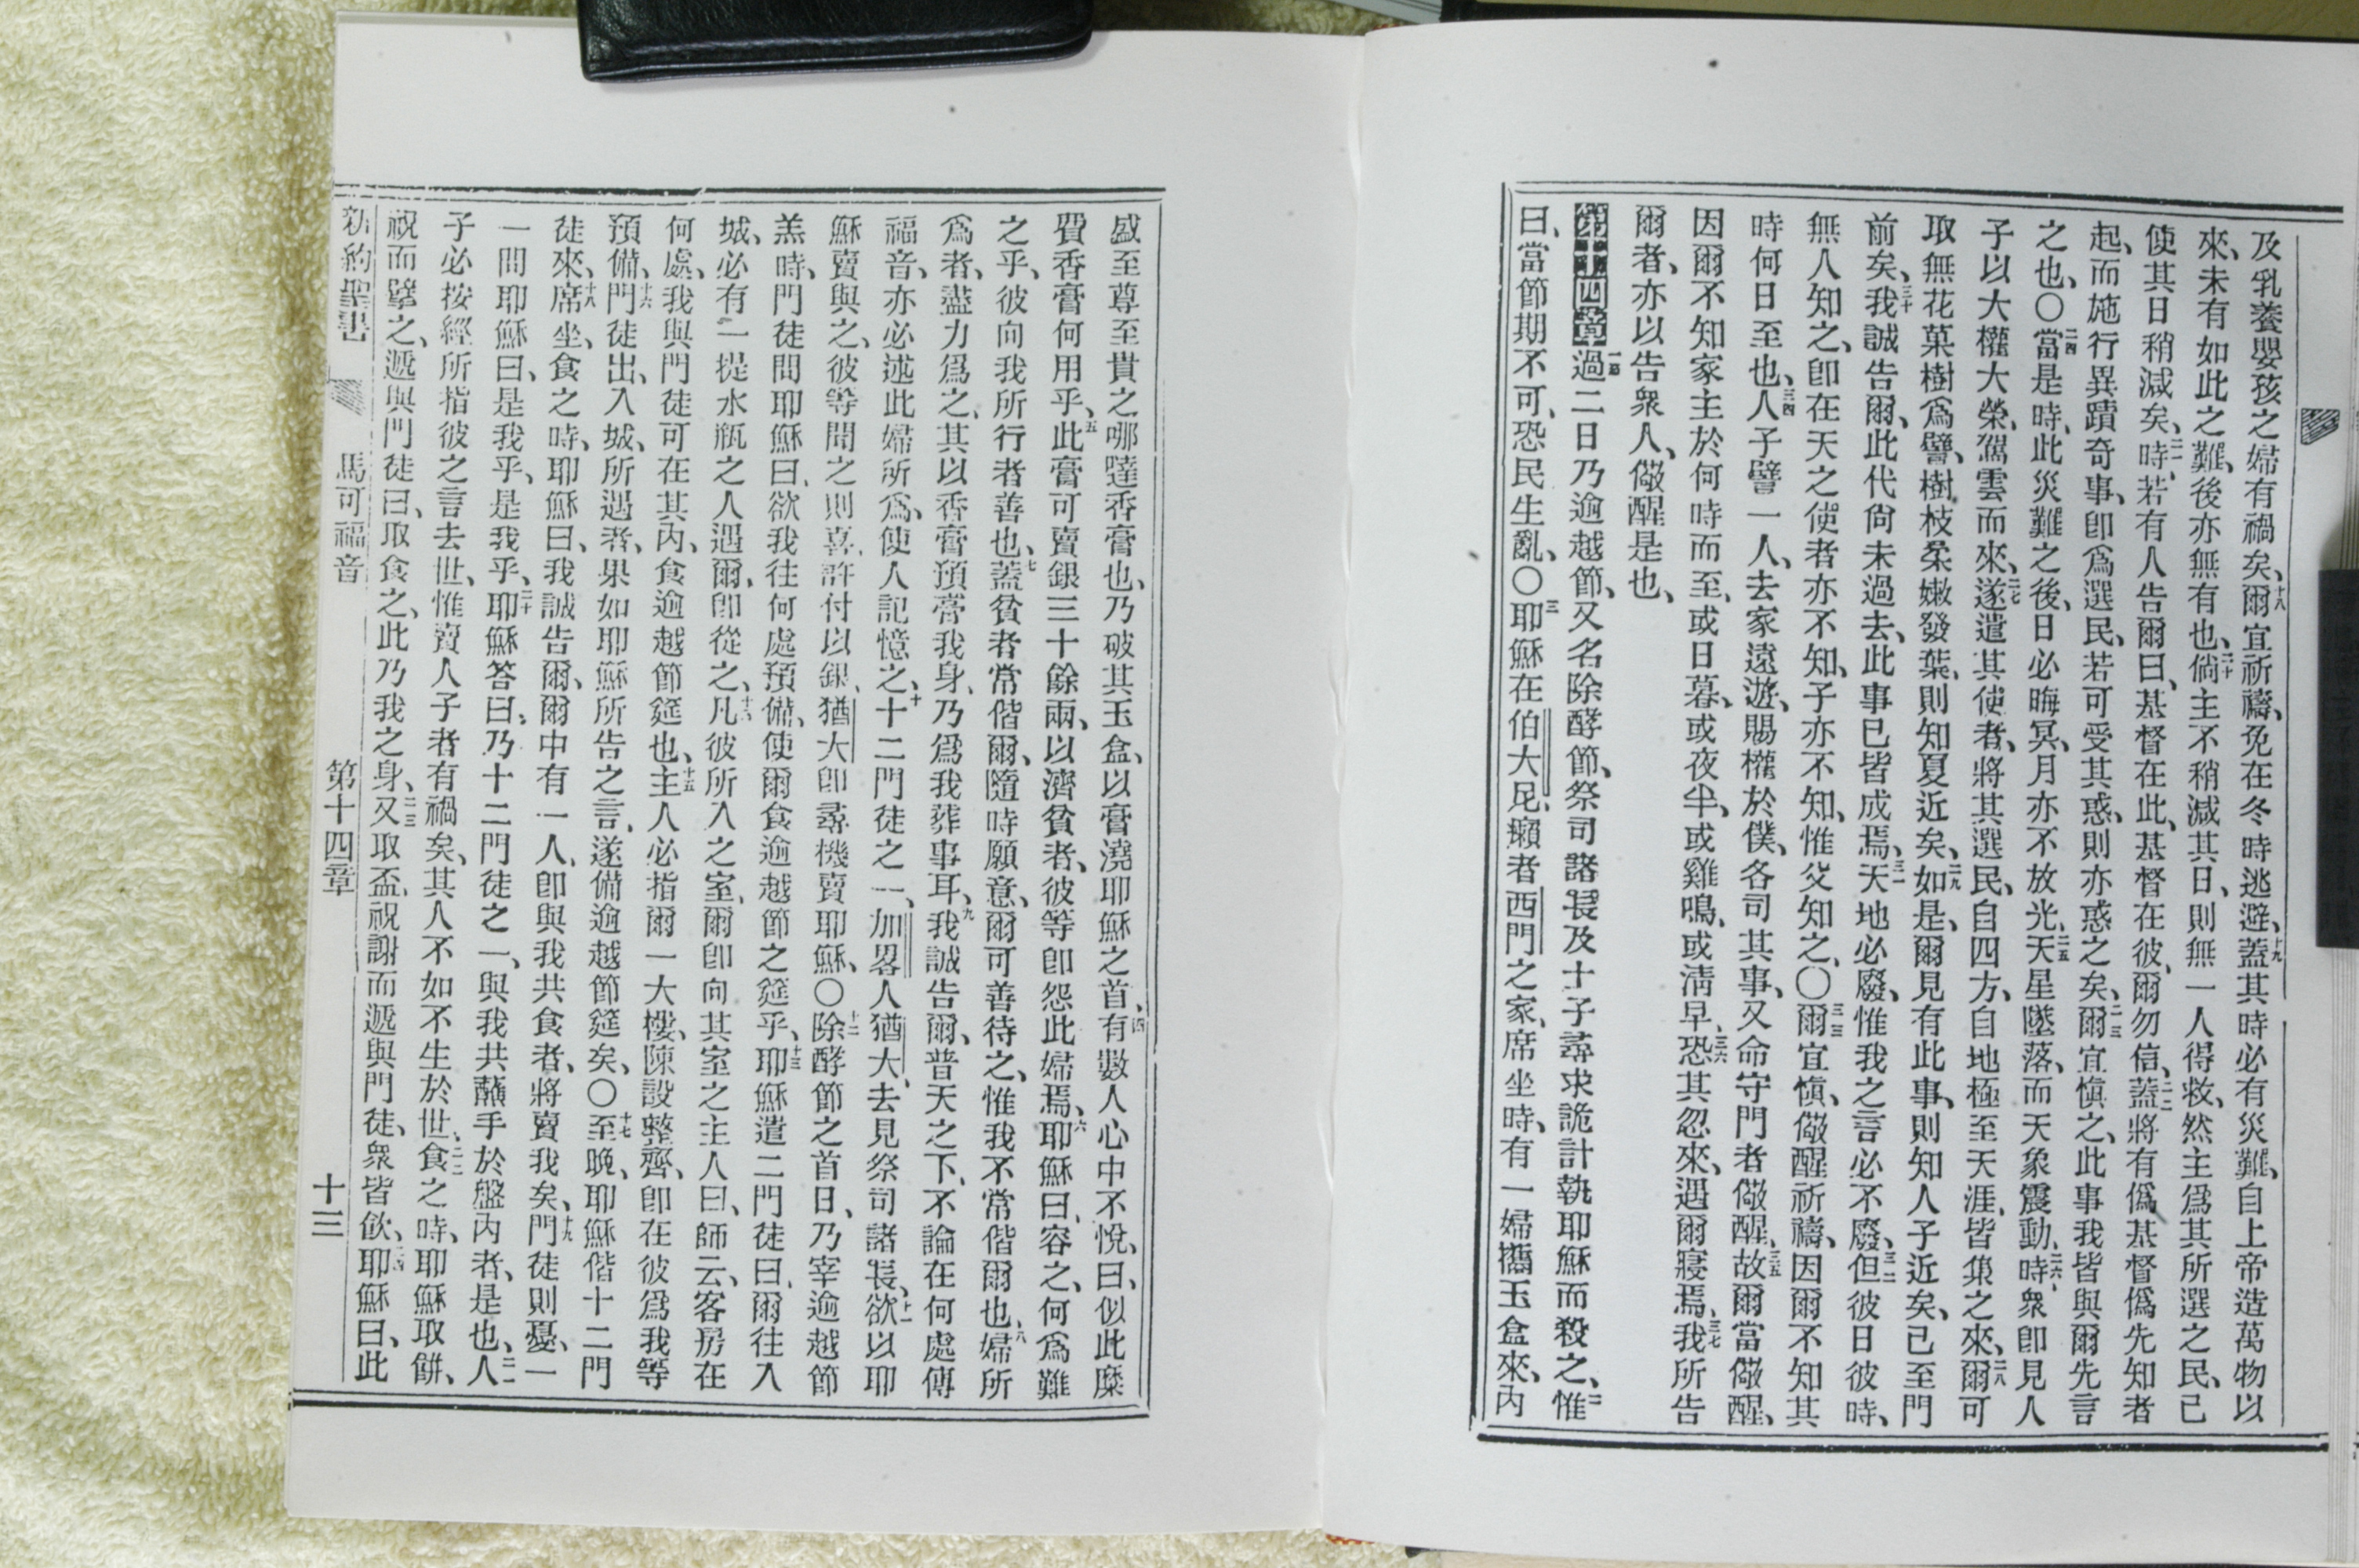 及乳養嬰孩之婦有禍矣、十八爾宜祈禱、免在冬時逃避、十九蓋其時必有災難、自上帝造萬物以
來、未有如此之難、後亦無有也、二十倘主不稍減其日、則無一人得救、然主爲其所選之民、已
使其日稍減矣、二一時、若有人告爾曰、基督在此、基督在彼、爾勿信、二二蓋將有僞基督僞先知者
起、而施行異蹟奇事、卽爲選民、若可受其惑、則亦惑之矣、二三爾宜愼之、此事我皆與爾先言
之也、〇二四當是時、此災難之後、日必晦冥、月亦不放光、二五天星墜落、而天象震動、二六時、衆卽見人
子以大權大榮、駕雲而來、二七遂遣其使者、將其選民、自四方、自地極至天涯、皆集之來、二八爾可
取無花菓樹爲譬、樹枝柔嫩發葉、則知夏近矣、二九如是、爾見有此事、則知人子近矣、已至門
前矣、三十我誠告爾、此代尙未過去、此事已皆成焉、三一天地必廢、惟我之言必不廢、三二但彼日彼時、
無人知之、卽在天之使者亦不知、子亦不知、惟父知之、〇三三爾宜愼、儆醒祈禱、因爾不知其
時何日至也、三四人子譬一人、去家遠遊、賜權於僕、各司其事、又命守門者儆醒、三五故爾當儆醒、
因爾不知家主於何時而至、或日暮、或夜半、或雞鳴、或淸早、三六恐其忽來、遇爾寢焉、三七我所告
爾者、亦以告衆人、儆醒是也、
第十四章 一過二日乃逾越節、又名除酵節、祭司諸長及士子尋求詭計執耶穌而殺之、二惟
曰、當節期不可、恐民生亂、〇三耶穌在伯大尼、癩者西門之家、席坐時、有一婦攜玉盒來、內
盛至尊至貴之哪噠香膏也、乃破其玉盒、以膏澆耶穌之首、四有數人心中不悅、曰、似此糜
費香膏何用乎、五此膏可賣銀三十餘兩、以濟貧者、彼等卽怨此婦焉、六耶穌曰、容之、何爲難
之乎、彼向我所行者善也、七蓋貧者常偕爾、隨時願意、爾可善待之、惟我不常偕爾也、八婦所
爲者、盡力爲之、其以香膏預膏我身、乃爲我葬事耳、九我誠告爾、普天之下、不論在何處傳
福音、亦必述此婦所爲、使人記憶之、十十二門徒之一、加畧人猶大、去見祭司諸長、欲以耶
穌賣與之、十一彼等聞之則喜、許付以銀、猶大卽尋機賣耶穌、〇十二除酵節之首日、乃宰逾越節
羔時、門徒問耶穌曰、欲我往何處預備、使爾食逾越節之筵乎、十三耶穌遣二門徒曰、爾往入
城、必有一提水瓶之人遇爾、卽從之、十四凡彼所入之室、爾卽向其室之主人曰、師云、客房在
何處、我與門徒可在其內、食逾越節筵也、十五主人必指爾一大樓、陳設整齊、卽在彼爲我等
預備、十六門徒出、入城、所遇者、果如耶穌所告之言、遂備逾越節筵矣、〇十七至晚、耶穌偕十二門
徒來、十八席坐、食之時、耶穌曰、我誠告爾、爾中有一人、卽與我共食者、將賣我矣、十九門徒則憂、一
一問耶穌曰、是我乎、是我乎、二十耶穌答曰、乃十二門徒之一、與我共蘸手於盤內者、是也、二一人
子必按經所指彼之言去世、惟賣人子者有禍矣、其人不如不生於世、二二食之時、耶穌取餅、
祝而擘之、遞與門徒曰、取食之、此乃我之身、二三又取盃、祝謝而遞與門徒、衆皆飮、二四耶穌曰、此
新約聖書 馬可福音 第十四章 十三